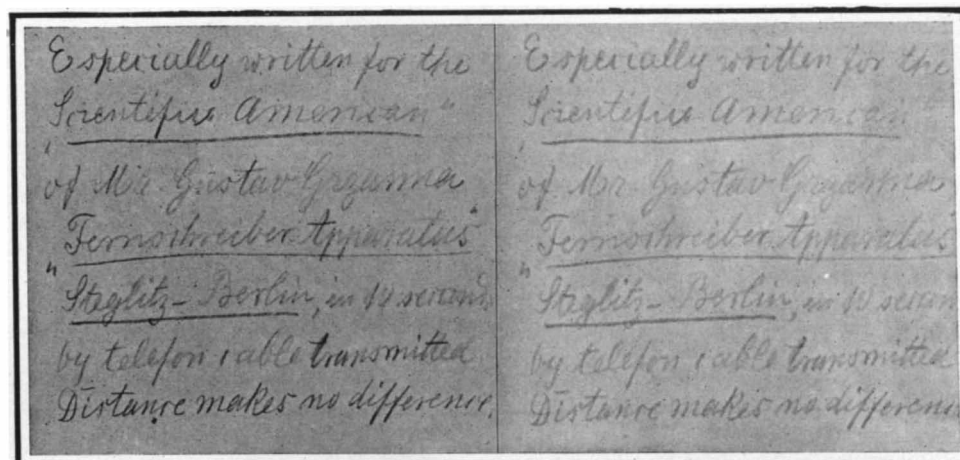 Especially written for the
Scientific American"
of Mr. Gustav Grzanna
"Fernschreiber Apparatus"
"Steglitz-Berlin, in 10 second,
by telefon cable transmitted
Distance makes no difference.
Especially written for the
Scientific American"
of Mr. Gustav Grzanna
"Fernschreiber Apparatus
"Steglitz-Berlin, in 10 secon
by telefon cable transmitted
Distance makes no difference